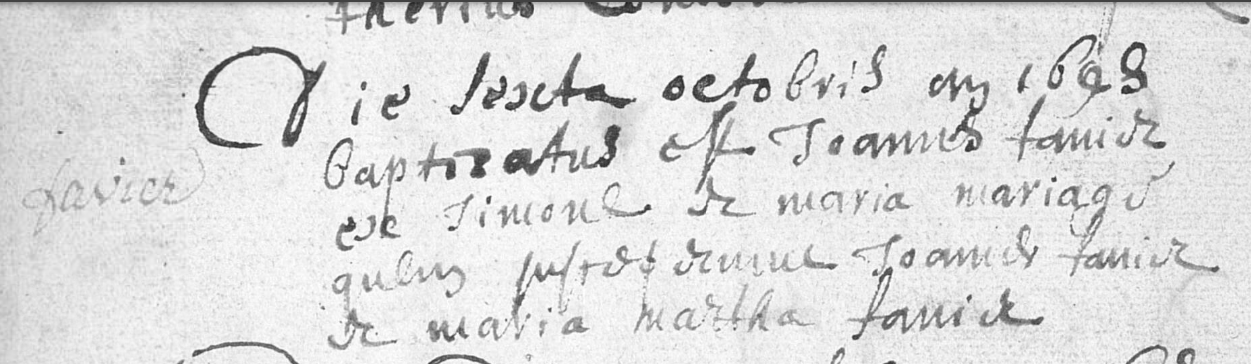 Die sexta octobris an 1698
baptisatus est Joannes favier
favier
ex Simone et maria mariage
quem susceperunt Joannes favier
et maria martha favier